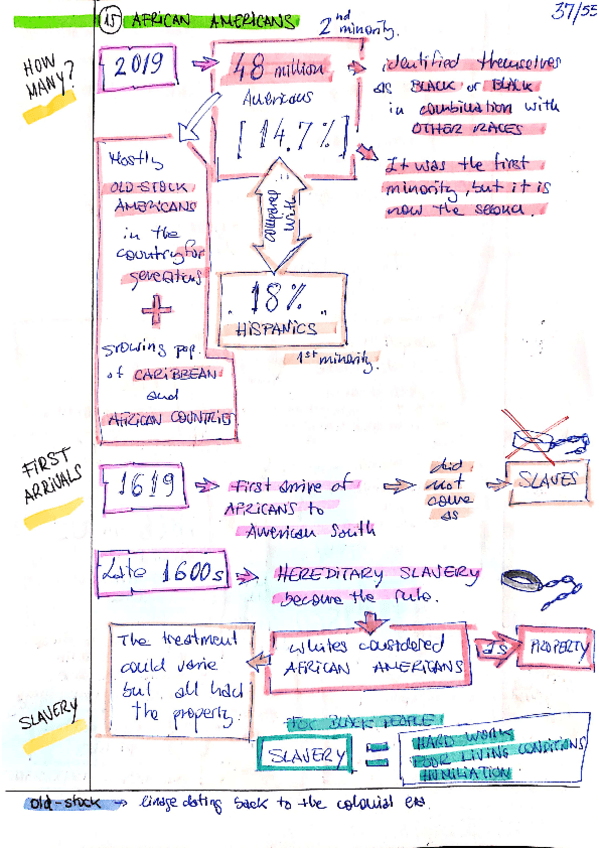 15 AFRICAN AMERICANS
37/55
HOW
MANY?
2019
2nd
minority.
48 million
Americans
[14.7%]
identified themselves
as BLACK or BLACK
in combination with
OTHER RACES
It was the first
minority, but it is
now the second.
Mostly
OLD-STOCK
AMERICANS
in the
country for
generations
+
growing pop.
of CARIBBEAN
and
AFRICAN COUNTRIES
COMPARED
WITH
18%
HISPANICS
1st minority.
FIRST
ARRIVALS
1619
First arrive of
AFRICANS to
American South
did
not
come
as
SLAVES
Late 1600s
HEREDITARY SLAVERY
become the rule.
whites considered
AFRICAN AMERICANS
as
PROPERTY
The treatment
could varie
but all had
the property.
SLAVERY
FOR BLACK PEOPLE
SLAVERY
=
HARD WORK
POOR LIVING CONDITIONS
HUMILIATION
old-stock → linage dating back to the colonial era